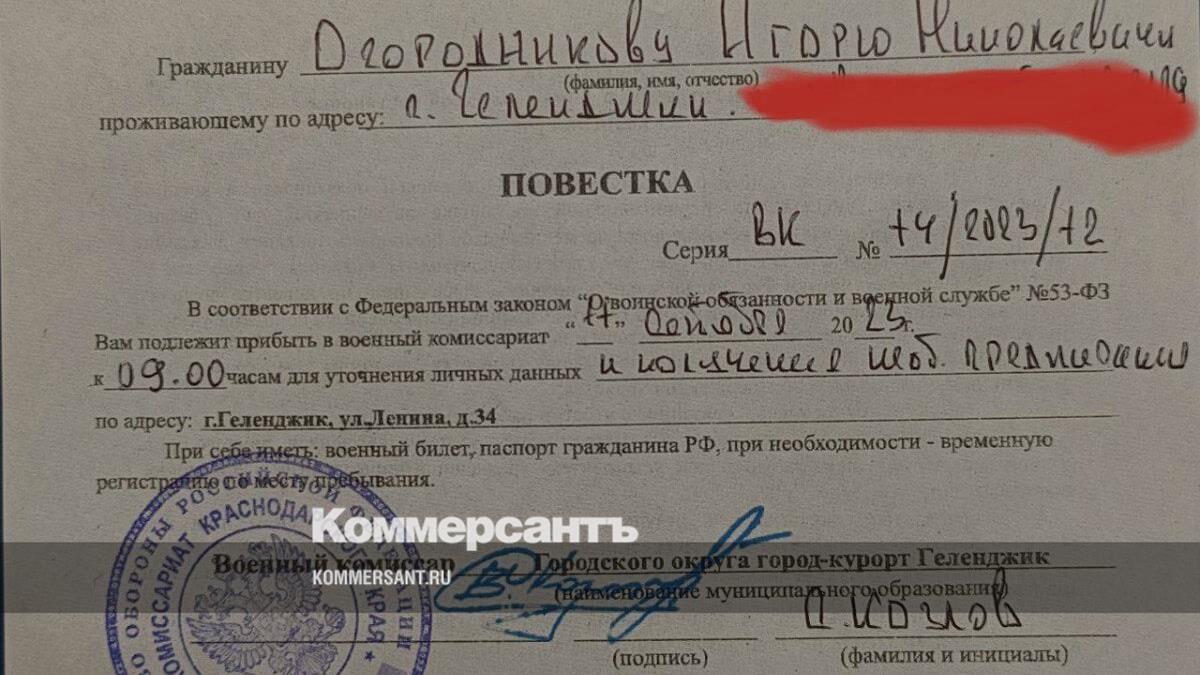 Гражданину Огородникову Игорю Николаевичу
(фамилия, имя, отчество)
проживающему по адресу: г. Геленджик.
ПОВЕСТКА
Серия ВК № 74/2023/12
В соответствии с Федеральным законом “О воинской обязанности и военной службе” №53-ФЗ
Вам подлежит прибыть в военный комиссариат “17” 2023г.
к 09.00 часам для уточнения личных данных и получения моб. предписания
по адресу: г.Геленджик, ул.Ленина, д.34
При себе иметь: военный билет, паспорт гражданина РФ, при необходимости - временную
регистрацию по месту пребывания.
КоммерсантЪ
Военный комиссар Городского округа город-курорт Геленджик
KOMMERSANT.RU
(наименование муниципального образования)
Козлов
(подпись) (фамилия и инициалы)
ОБОРОНЫ РОССИЙСКОЙ ФЕДЕРАЦИИ
КОМИССАРИАТ КРАСНОДАРСКОГО КРАЯ